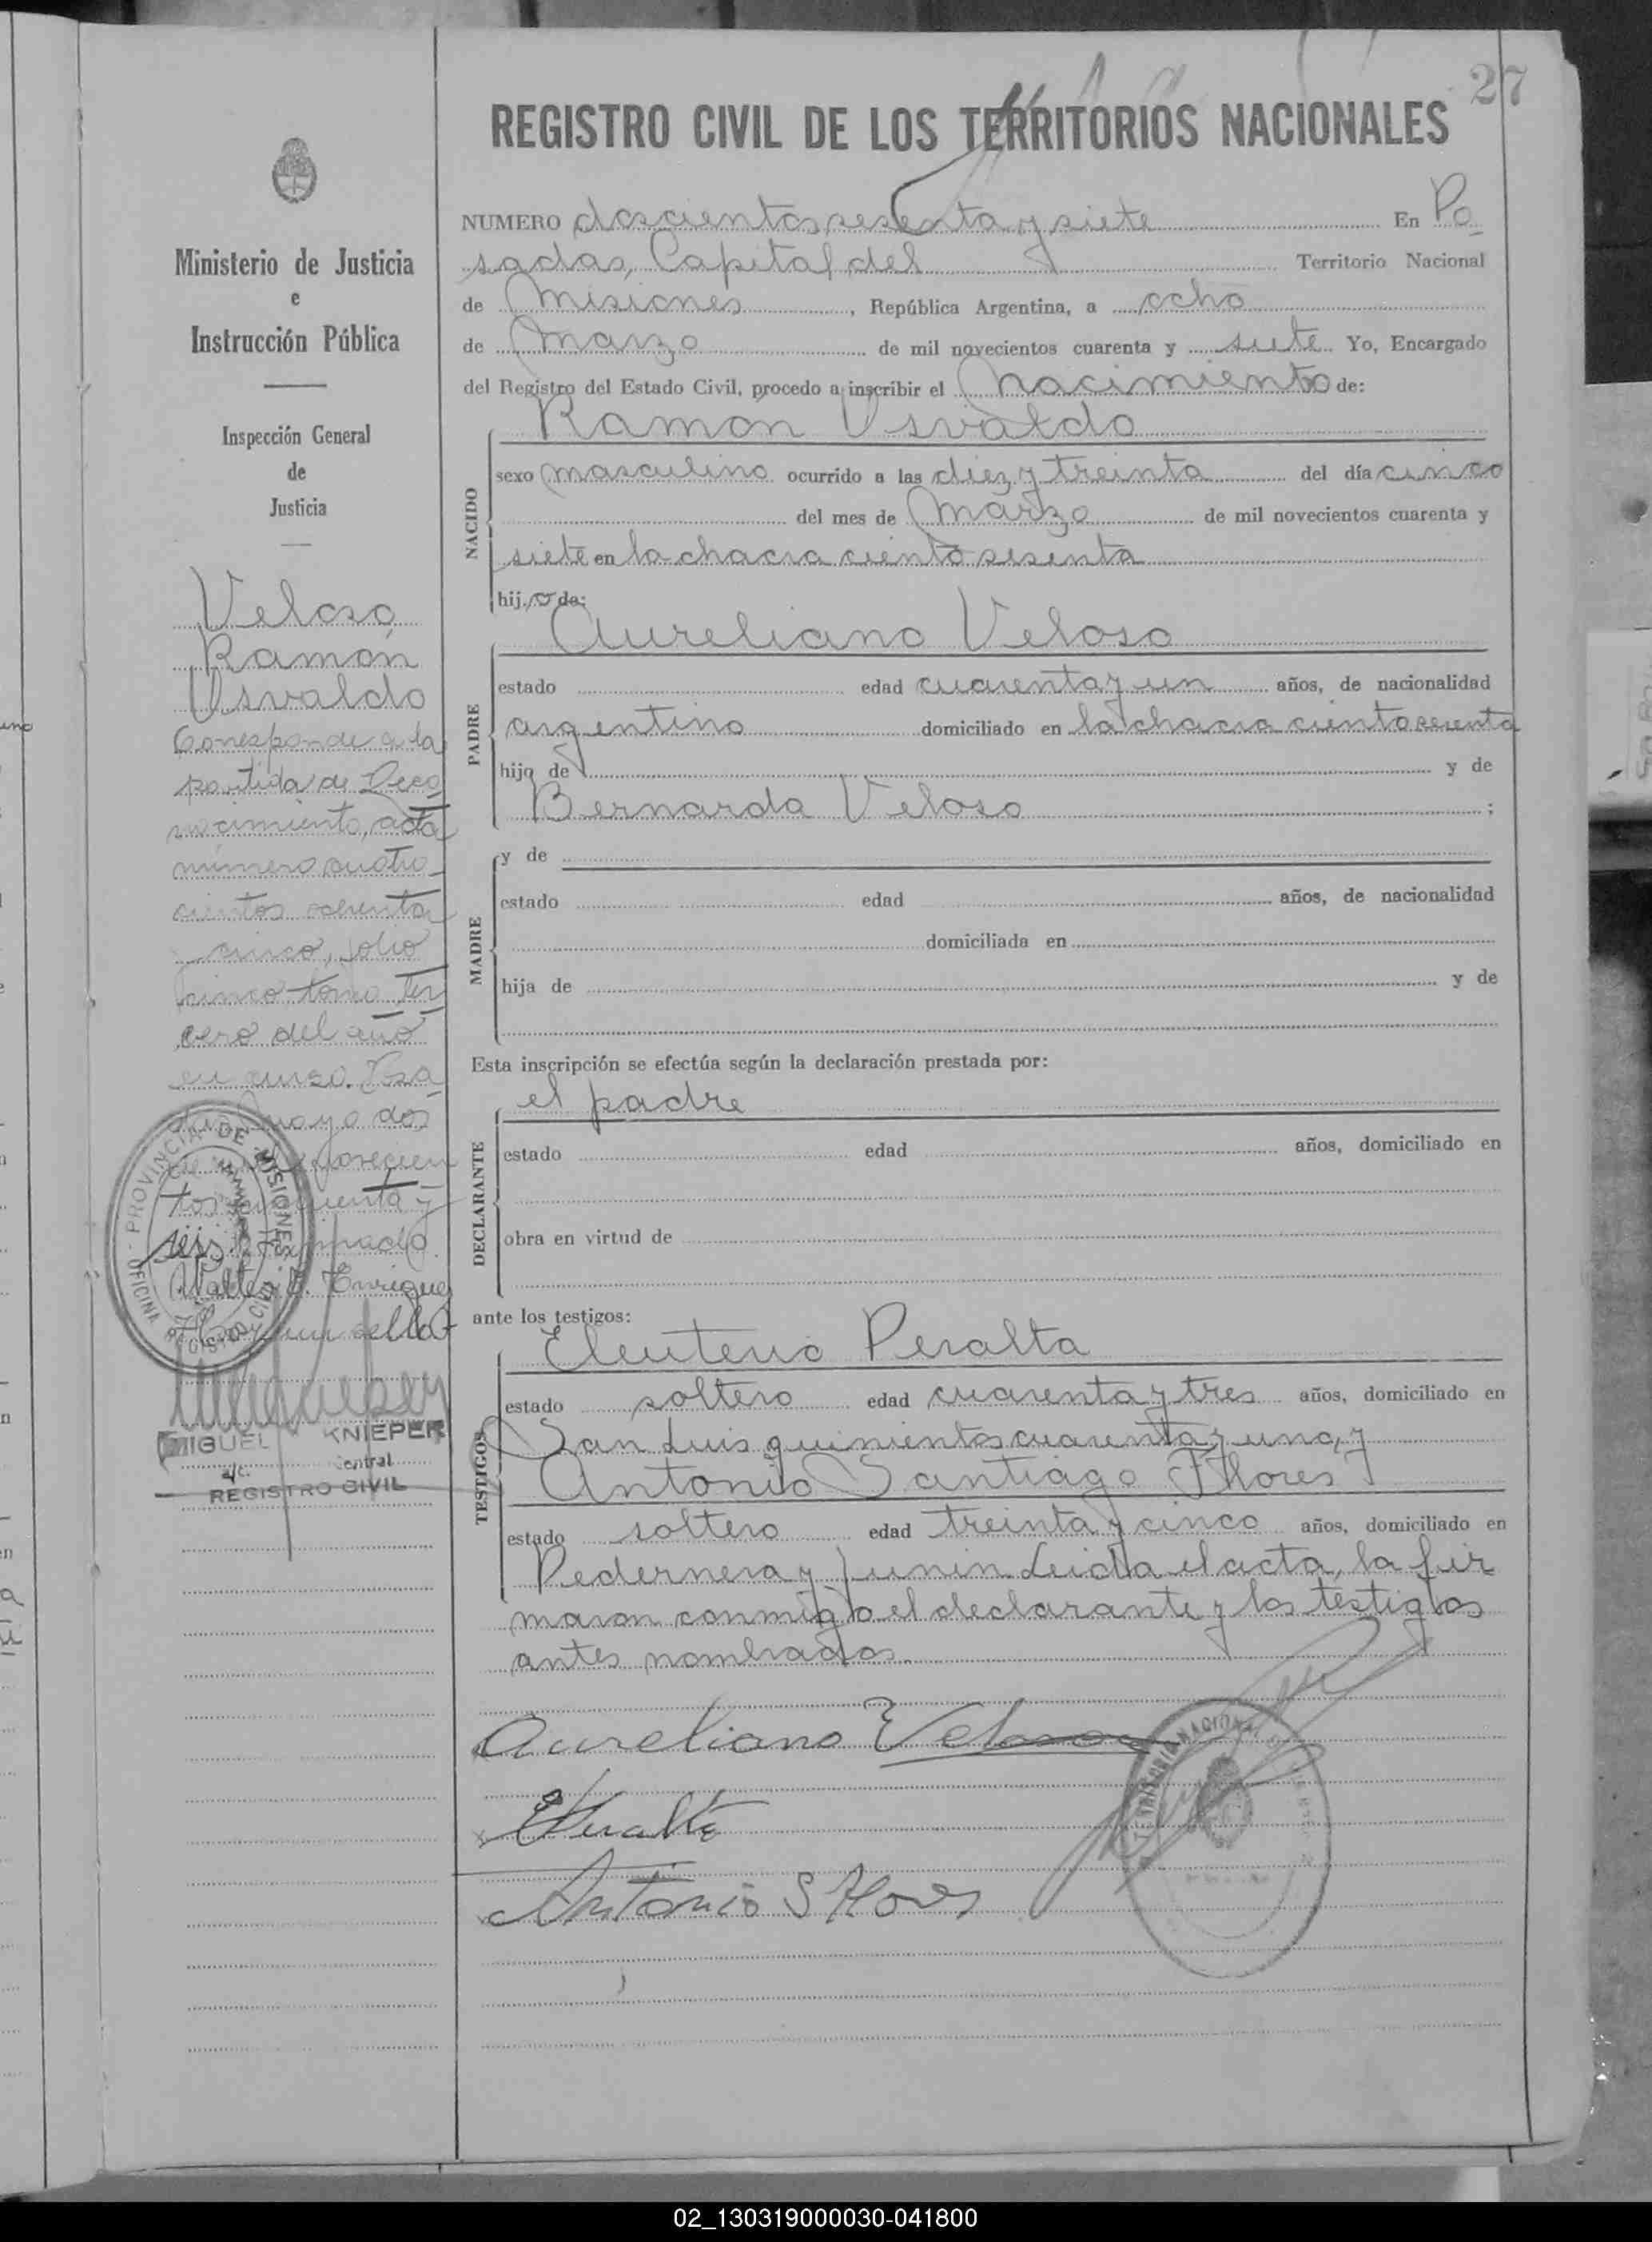 27
REGISTRO CIVIL DE LOS TERRITORIOS NACIONALES
NUMERO doscientos sesenta y siete En Po
sadas, Capital del Territorio Nacional
de Misiones, República Argentina, a ocho
de Marzo de mil novecientos cuarenta y siete Yo, Encargado
del Registro del Estado Civil, procedo a inscribir el Nacimiento de:
NACIDO
Ramón Usvaldo
sexo masculino ocurrido a las diez y treinta del día cinco
del mes de Marzo de mil novecientos cuarenta y
siete en la chacra ciento sesenta
hijo de:
PADRE
Aureliano Veloso
estado edad cuarenta y un años, de nacionalidad
argentino domiciliado en la chacra ciento sesenta
hijo de y de
Bernarda Veloso ;
MADRE
y de
estado edad años, de nacionalidad
domiciliada en
hija de y de
Esta inscripción se efectúa según la declaración prestada por:
DECLARANTE
el padre
estado edad años, domiciliado en
obra en virtud de
ante los testigos:
TESTIGOS
Eleuterio Peralta
estado soltero edad cuarenta y tres años, domiciliado en
San Luis quinientos cuarenta y uno, y
Antonio Santiago Flores
estado soltero edad treinta y cinco años, domiciliado en
Pedernera y Junin. Leida el acta, la fir
maron conmigo el declarante y los testigos
antes nombrados.
Aureliano Veloso
EPeralta
Antonio S Flores
Ministerio de Justicia
e
Instrucción Pública
Inspección General
de
Justicia
Veloso,
Ramón
Usvaldo
Corresponde a la
partida de Reco
nocimiento, acta
número cuatro
cientos ochenta
cinco, folio
cinco tomo Ter
cero del año
en curso. Posa
das, Mayo dos
de mil novecien
tos cincuenta y
seis.
Walter Enrique
sello
PROVINCIA DE MISIONES
OFICINA REGISTRO CIVIL
MIGUEL KNIEPER
a/c. Central
REGISTRO CIVIL
02_130319000030-041800